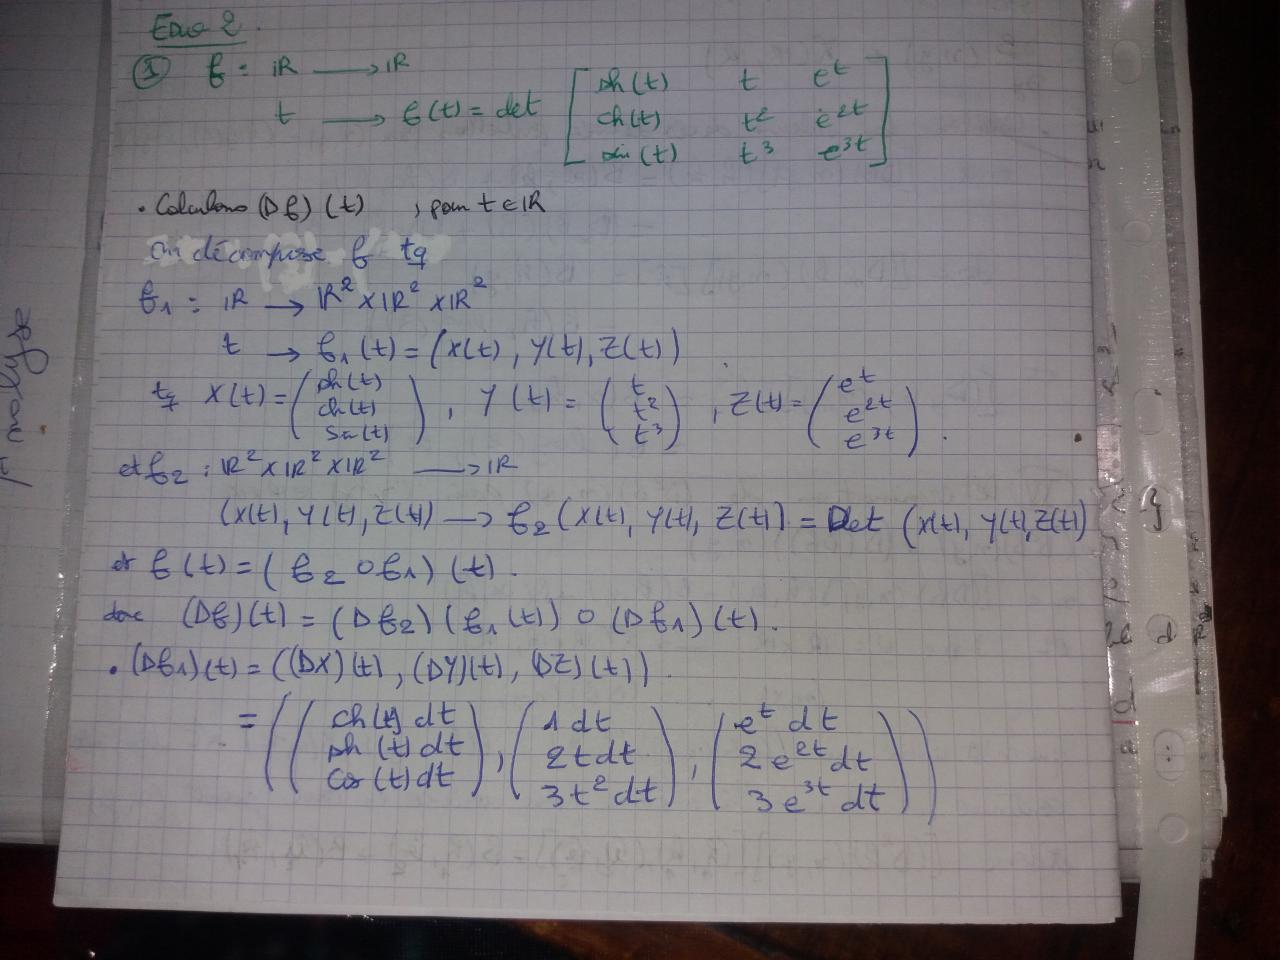 Exo 2.
① f : IR → IR
t → f(t) = det [ sh(t) t e^t
ch(t) t² e^{2t}
sin(t) t³ e^{3t} ]
• Calculons (Df)(t) , pour t ∈ IR
On décompose f tq
f₁ : IR → IR² × IR² × IR²
t → f₁(t) = (X(t), Y(t), Z(t))
tq X(t) = ( sh(t) ch(t) sin(t) ) , Y(t) = ( t t² t³ ) , Z(t) = ( e^t e^{2t} e^{3t} ) .
et f₂ : IR² × IR² × IR² → IR
(X(t), Y(t), Z(t)) → f₂(X(t), Y(t), Z(t)) = Det (X(t), Y(t), Z(t))
et f(t) = (f₂ o f₁)(t) .
donc (Df)(t) = (Df₂)(f₁(t)) o (Df₁)(t) .
• (Df₁)(t) = ((DX)(t), (DY)(t), (DZ)(t)) .
= ( ( ch(t) dt sh(t) dt cos(t) dt ) , ( 1 dt 2t dt 3t² dt ) , ( e^t dt 2e^{2t} dt 3e^{3t} dt ) )